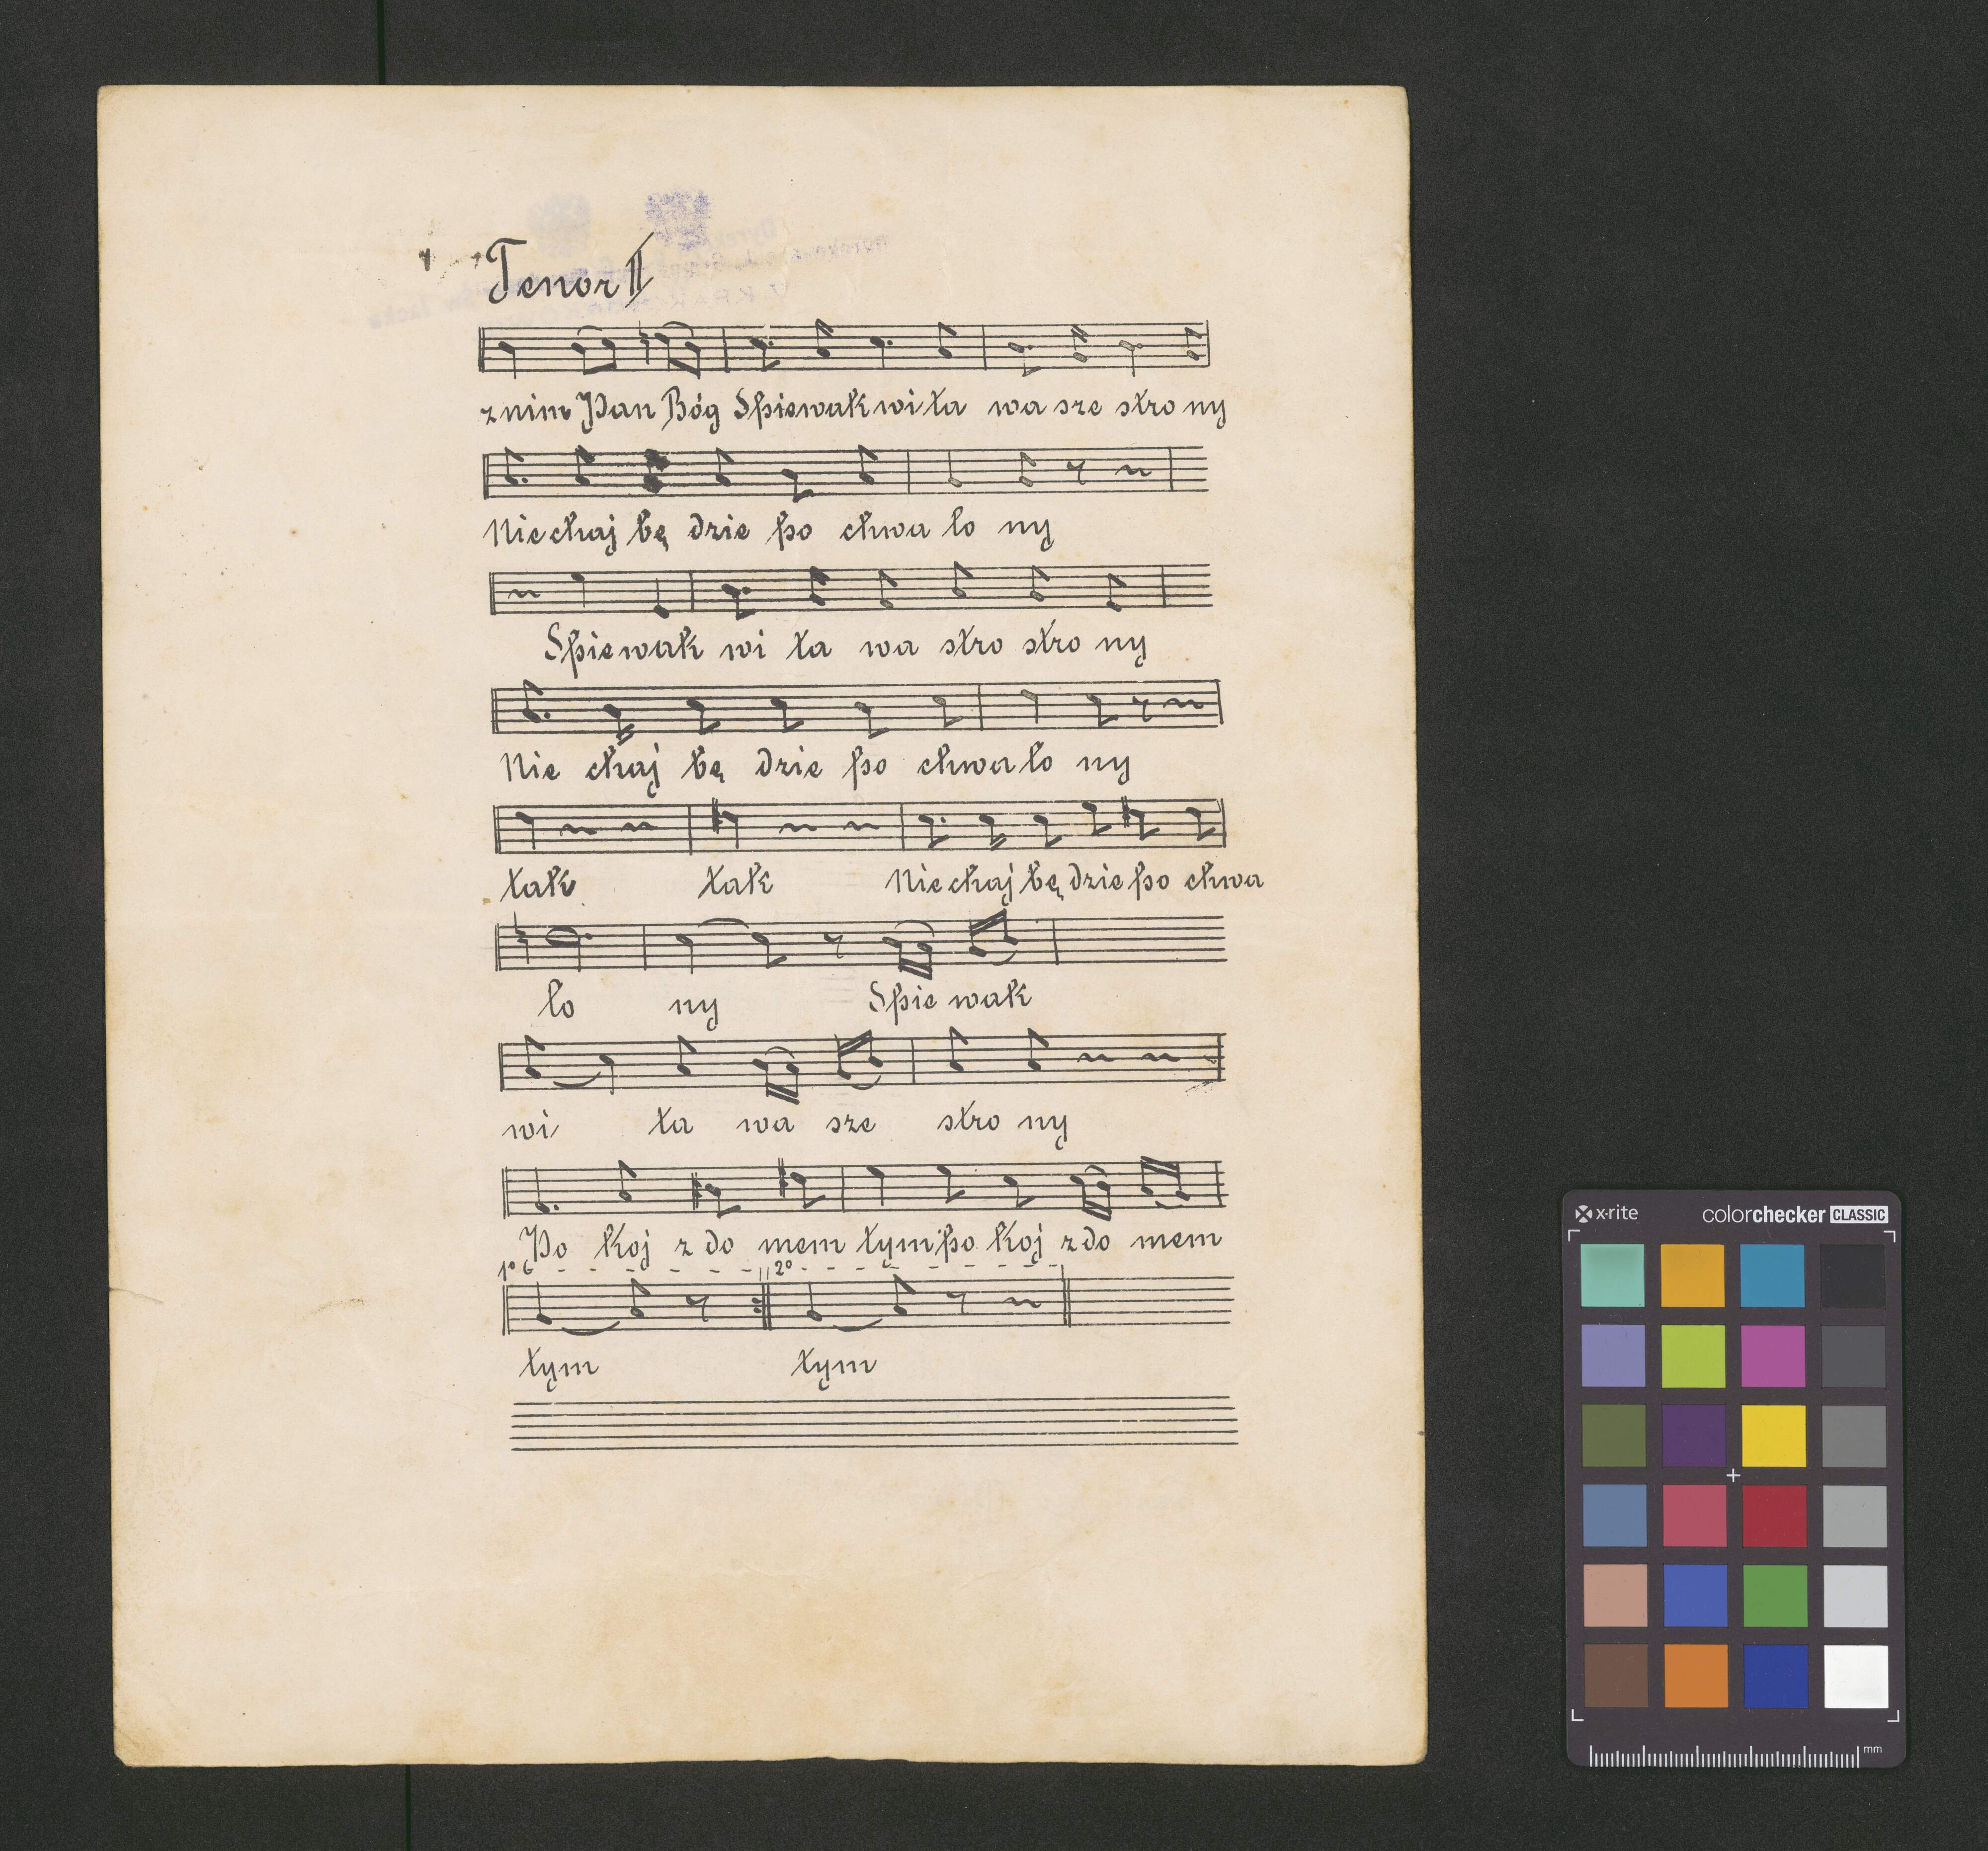 Tenor II
z nim Pan Bóg Spiewak wi ta wa sze stro ny
Nie chaj bę dzie po chwa lo ny
Spie wak wi ta wa stro stro ny
Nie chaj bę dzie po chwa lo ny
tak tak Nie chaj bę dzie po chwa
lo ny Spie wak
wi ta wa sze stro ny
Po koj z do mem tym po koj z do mem
1º 2º
tym tym
x·rite colorchecker CLASSIC
mm